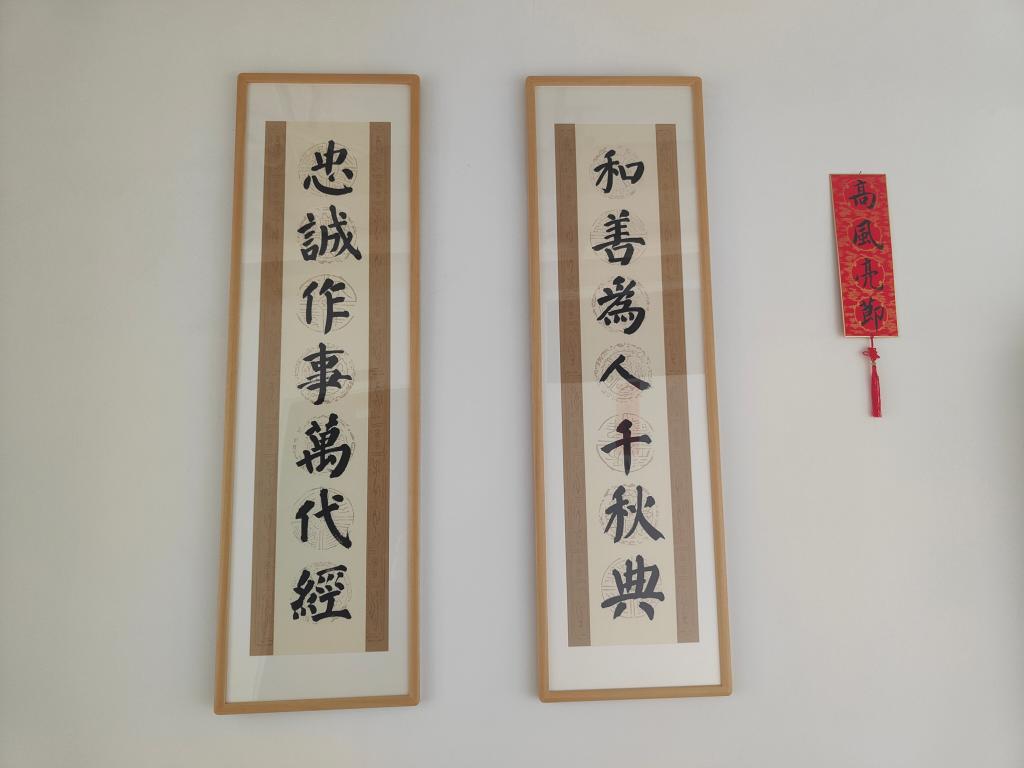 和善為人千秋典
忠誠作事萬代經
高風亮節